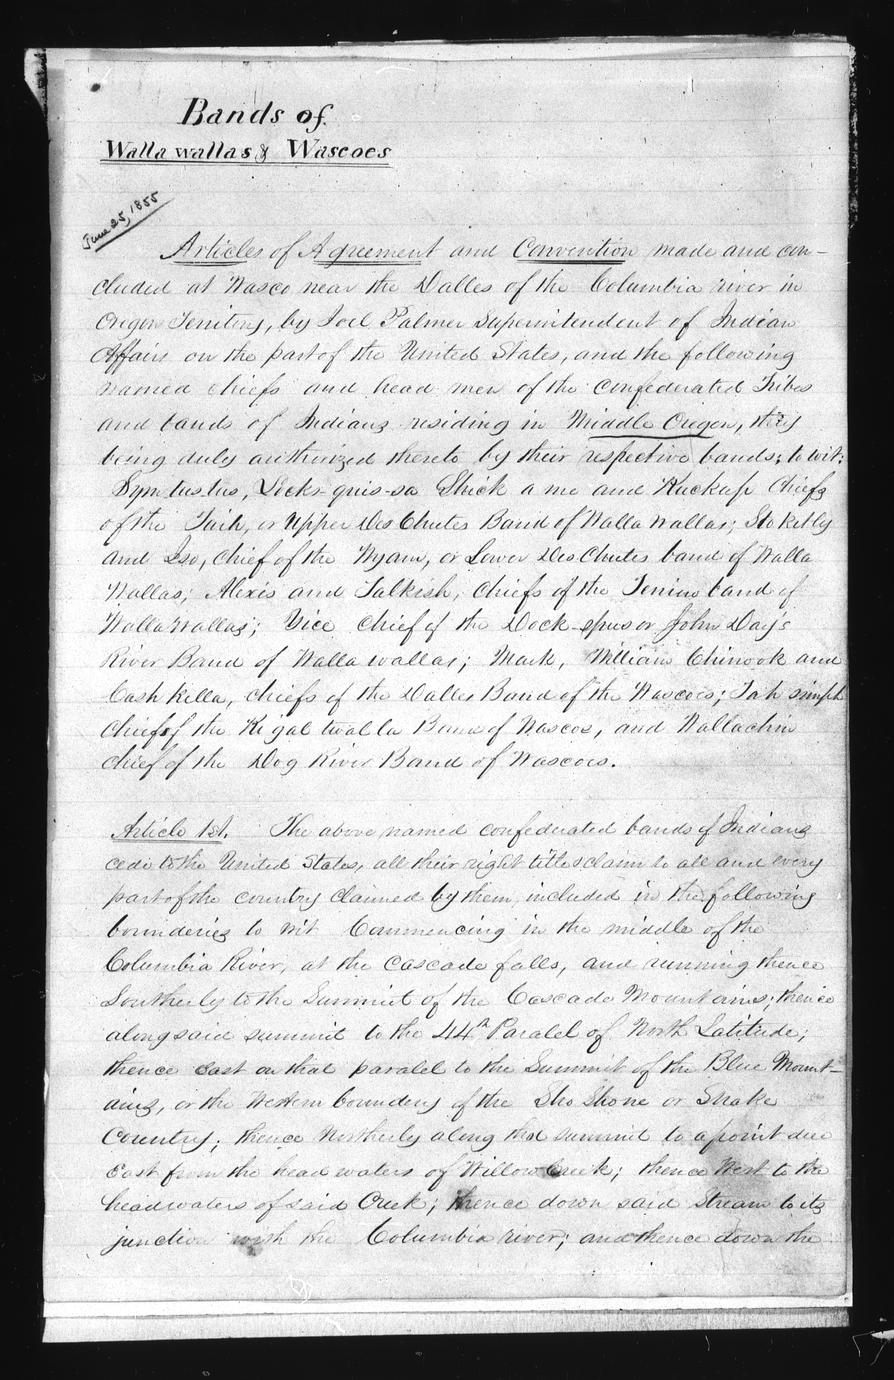 Bands of
Walla wallas & Wascoes
June 25, 1855
Articles of Agreement and Convention made and con-
cluded at Wasco near the Dalles of the Columbia river in
Oregon Territory, by Joel Palmer Superintendent of Indian
Affairs on the part of the United States, and the following
named chiefs and head men of the confederated Tribes
and bands of Indians residing in Middle Oregon, they
being duly authorized thereto by their respective bands; to wit:
Symtustus, Locks-quis-sa Shick a me and Kuckup Chiefs
of the Taih, or Upper Des Chutes Band of Walla wallas; Stoketly
and Iso, chief of the Wyam, or Lower Des Chutes band of Walla
Wallas; Alexis and Talkish, Chiefs of the Tenino band of
Walla wallas; Yice Chief of the Dock-spus or John Day's
River Band of Walla wallas; Mark, William Chinook and
Cash Killa, chiefs of the Dalles Band of the Wascoes; Tah simph
Chief of the Ki gal twal la Band of Wascos, and Wallachin
chief of the Dog River Band of Wascoes.
Article 1st. The above named confederated bands of Indians
cede to the United States, all their right title & claim to all and every
part of the country claimed by them, included in the following
bounderies to wit Commencing in the middle of the
Columbia River, at the Cascade falls, and running thence
Southerly to the Summit of the Cascade Mountains; thence
along said summit to the 44th Paralel of North Latitude;
thence East on that paralel to the Summit of the Blue Mount-
ains, or the Western boundery of the Sho Shone or Snake
Country; thence Northerly along that summit to a point due
East from the head waters of Willow Creek; thence West to the
headwaters of said Creek; thence down said Stream to its
junction with the Columbia river; and thence down the